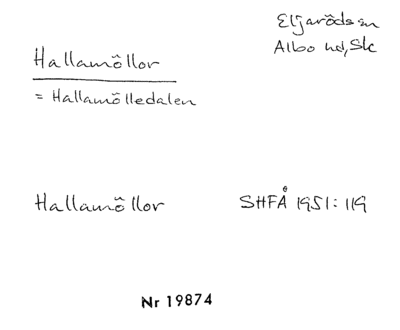 Eljaröds sn
Albo hd, Sk
Hallamöllor
= Hallamölledalen
Hallamöllor
SHFÅ 1951: 119
Nr 19874